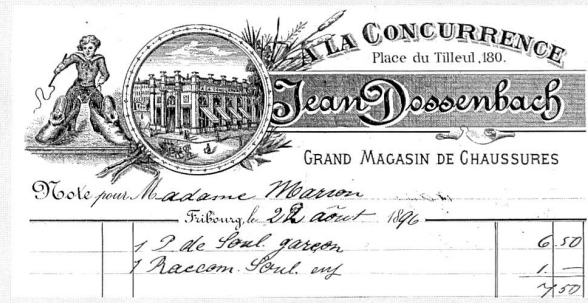 A LA CONCURRENCE
Place du Tilleul, 180.
Jean Dossenbach
GRAND MAGASIN DE CHAUSSURES
Note pour Madame Marion
Fribourg, le 22 août 1896
1 P de Soul. garçon 6.50
1 Raccom. Soul. enf 1. —
7.50